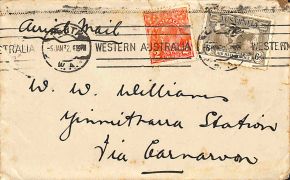 Air Mail
WESTERN AUSTRALIA
W.A.
AUSTRALIA
W. W. Williams
Yinnitharra Station
Via Carnarvon